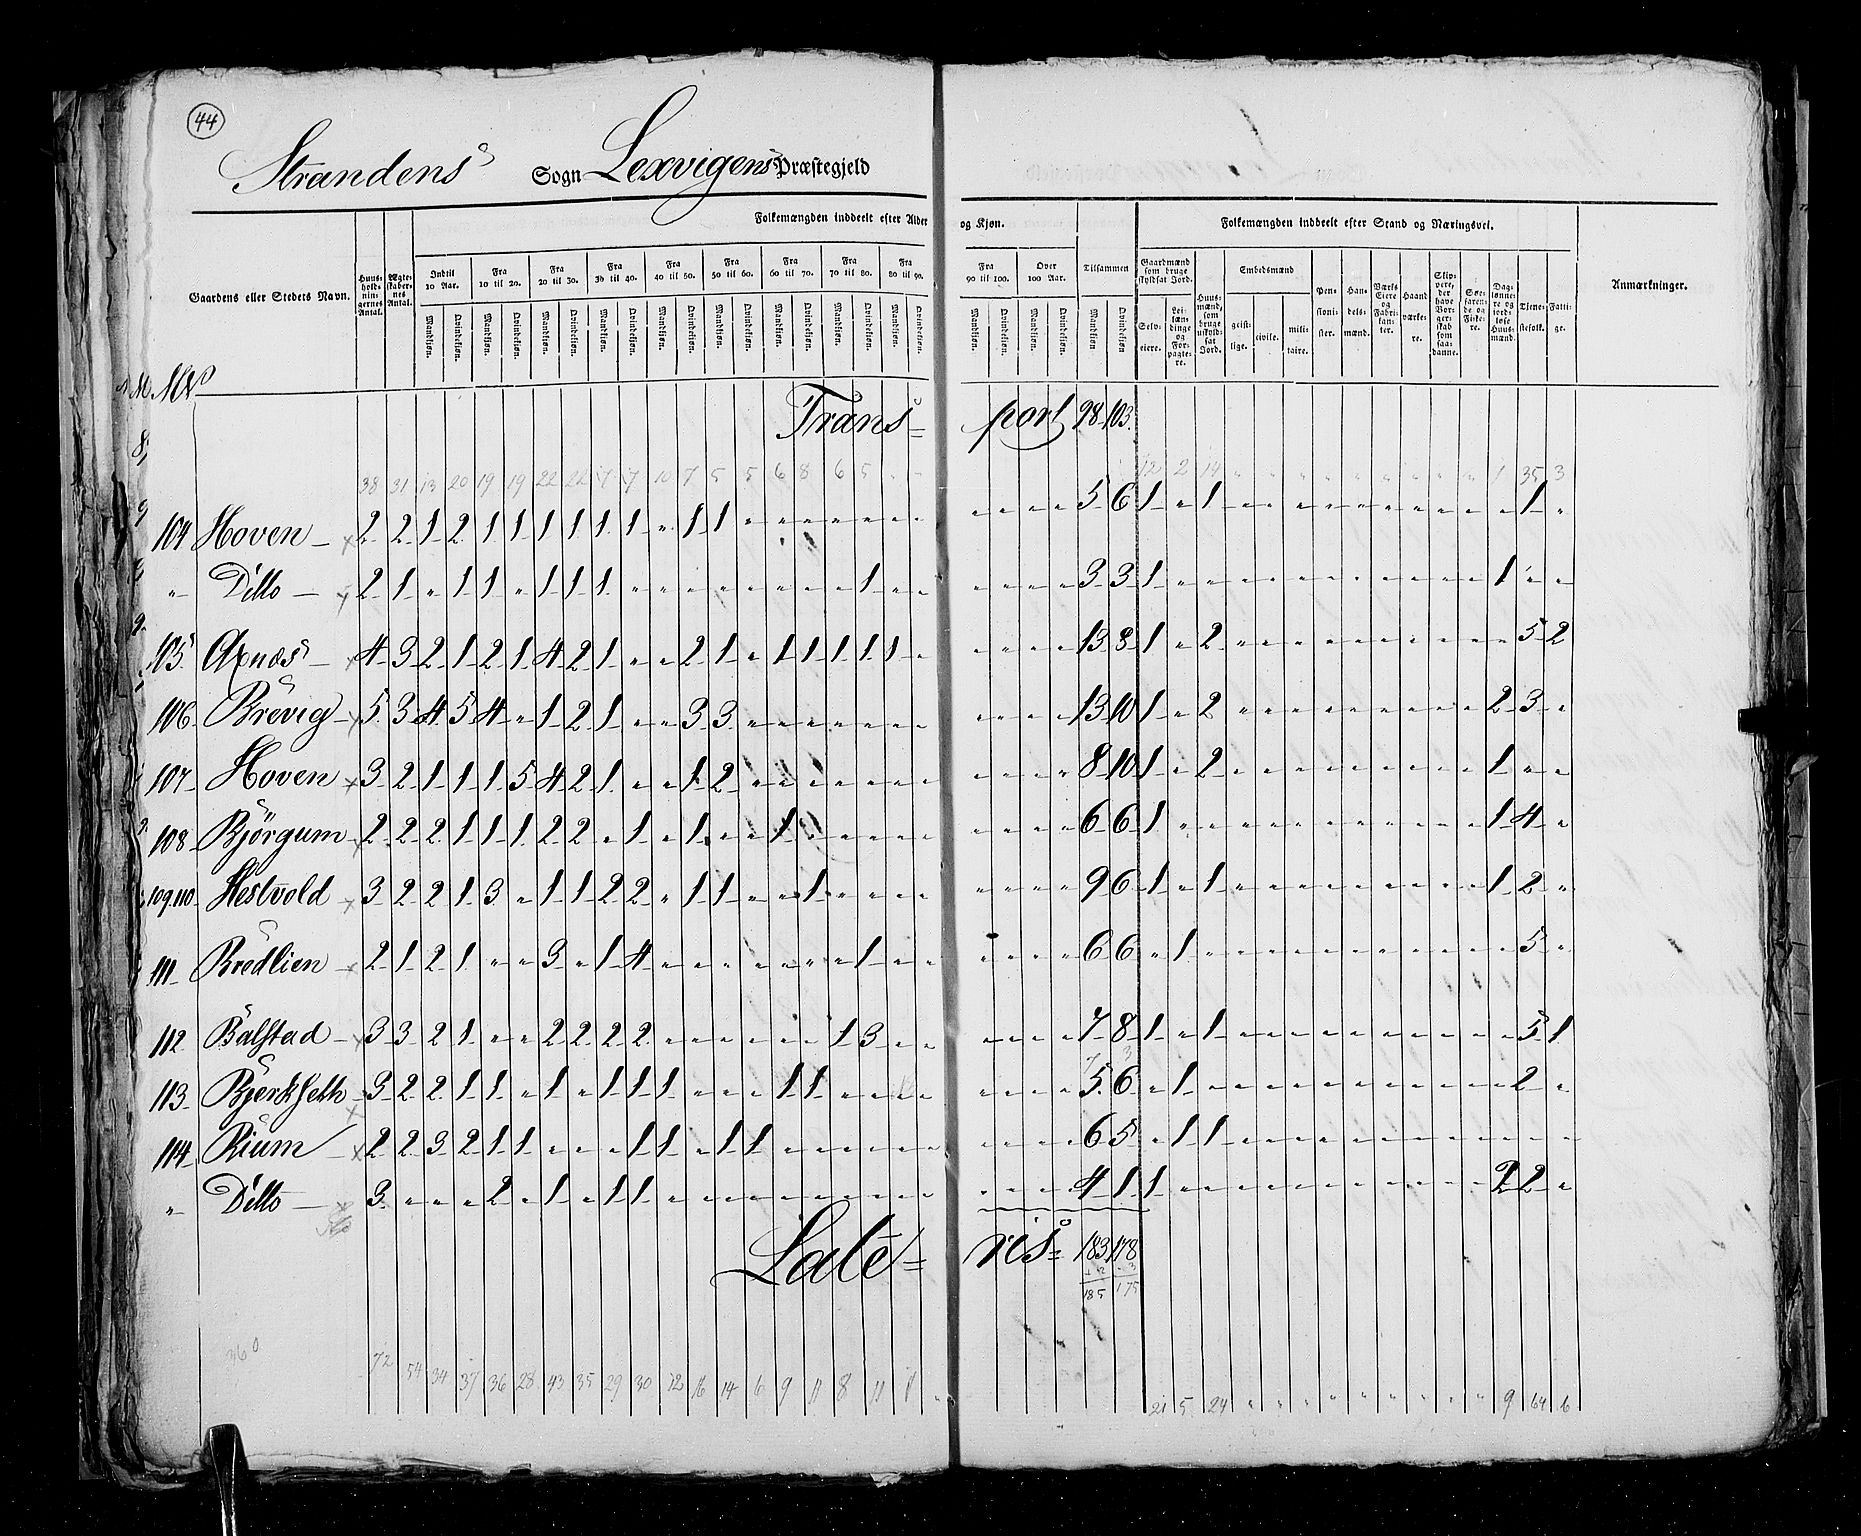 44
Strandens Sogn Lexvigens Præstegjeld
Folkemængden inddeelt efter Alder og Kjøn. Folkemængden inddeelt efter Stand og Næringsvei.
Gaardens eller Stedets Navn. Huusholdningernes Antal. Ægteskabernes Antal. Indtil 10 Aar. Fra 10 til 20. Fra 20 til 30. Fra 30 til 40. Fra 40 til 50. Fra 50 til 60. Fra 60 til 70. Fra 70 til 80. Fra 80 til 90. Fra 90 til 100. Over 100 Aar. Tilsammen Gaardmænd som bruge skyldsat Jord. Huusmænd, som bruge uskyldsat Jord. Embedsmænd Pensionister. Handelsmænd. Værks Eiere og Fabrikanter. Haandværkere. Skippere, der have Borgerskab som saadanne. Søefarende og Fiskere. Daglønnere og jordløse Huusmænd. Tjenestefolk. Fattige. Anmærkninger.
Mandkjøn. Qvindekjøn. Mandkjøn. Qvindekjøn. Mandkjøn. Qvindekjøn. Mandkjøn. Qvindekjøn. Mandkjøn. Qvindekjøn. Mandkjøn. Qvindekjøn. Mandkjøn. Qvindekjøn. Mandkjøn. Qvindekjøn. Mandkjøn. Qvindekjøn. Mandkjøn. Qvindekjøn. Mandkjøn. Qvindekjøn. Mandkjøn Qvindekjøn. Selveiere. Leilændinge og Forpagtere. geistlige. civile. militaire.
Trans= port 98 103.
38 31 13 20 19 19 22 22 7 7 10 7 5 5 6 8 6 5 " " 12 2 14 " " " " " " " " " 1 35 3
104 Hoven 2 2 1 2 1 1 1 1 1 1 " 1 1 " " " " " " " " " " " 5 6 1 " 1 " " " " " " " " " " 1 "
" Ditto 2 1 " 1 1 " 1 1 1 " " " " " " " " 1 " " " " " " 3 3 1 " " " " " " " " " " " 1 " "
105. Axnæs 4 3 2 1 2 1 4 2 1 " " 2 1 " 1 1 1 1 1 " " " " " 13 8 1 " 2 " " " " " " " " " " 5 2
106 Brevig 5 3 4 5 4 " 1 2 1 " " 3 3 " " " " " " " " " " " 13 10 1 " 2 " " " " " " " " " 2 3 "
107 Hoven 3 2 1 1 1 5 4 2 1 " " 1 2 " " " " " " " " " " " 8 10 1 " 2 " " " " " " " " " 1 " "
108 Bjørgum 2 2 2 1 1 1 2 2 " 1 " 1 " " 1 " " " " " " " " " 6 6 1 " " " " " " " " " " " 1 4 "
109.110 Hestvold 3 2 2 1 3 " 1 1 2 2 " 1 1 " " 1 " " " " " " " " 9 6 1 " 1 " " " " " " " " " 1 2 "
111 Brødlien 2 1 2 1 " " 3 " 1 4 " " " " " " " 1 " " " " " " 6 6 " 1 " " " " " " " " " " " 5 "
112 Balstad 3 3 2 1 " " 2 2 2 2 " " " " " " 1 3 " " " " " " 7 8 1 " 1 " " " " " " " " " " 5 1
113 Bjerkseth 3 2 2 1 1 " 1 " 1 1 1 " " " 1 1 " " " " " " " " 5 6 " 1 " " " " " " " " " " " 2 "
114 Rium 2 2 3 2 1 1 " " " 1 1 " 1 1 " " " " " " " " " " 6 5 " 1 1 " " " " " " " " " " " "
" Ditto 3 " " " 2 " 1 " 1 1 " " " " " " " " " " " " " " 4 1 1 " " " " " " " " " " " 2 2 "
Late= ris= 183 178
185 175
360
72 54 34 37 36 28 43 35 29 30 12 16 14 6 9 11 8 11 1 " 21 5 24 " " " " " " " " " 9 64 6